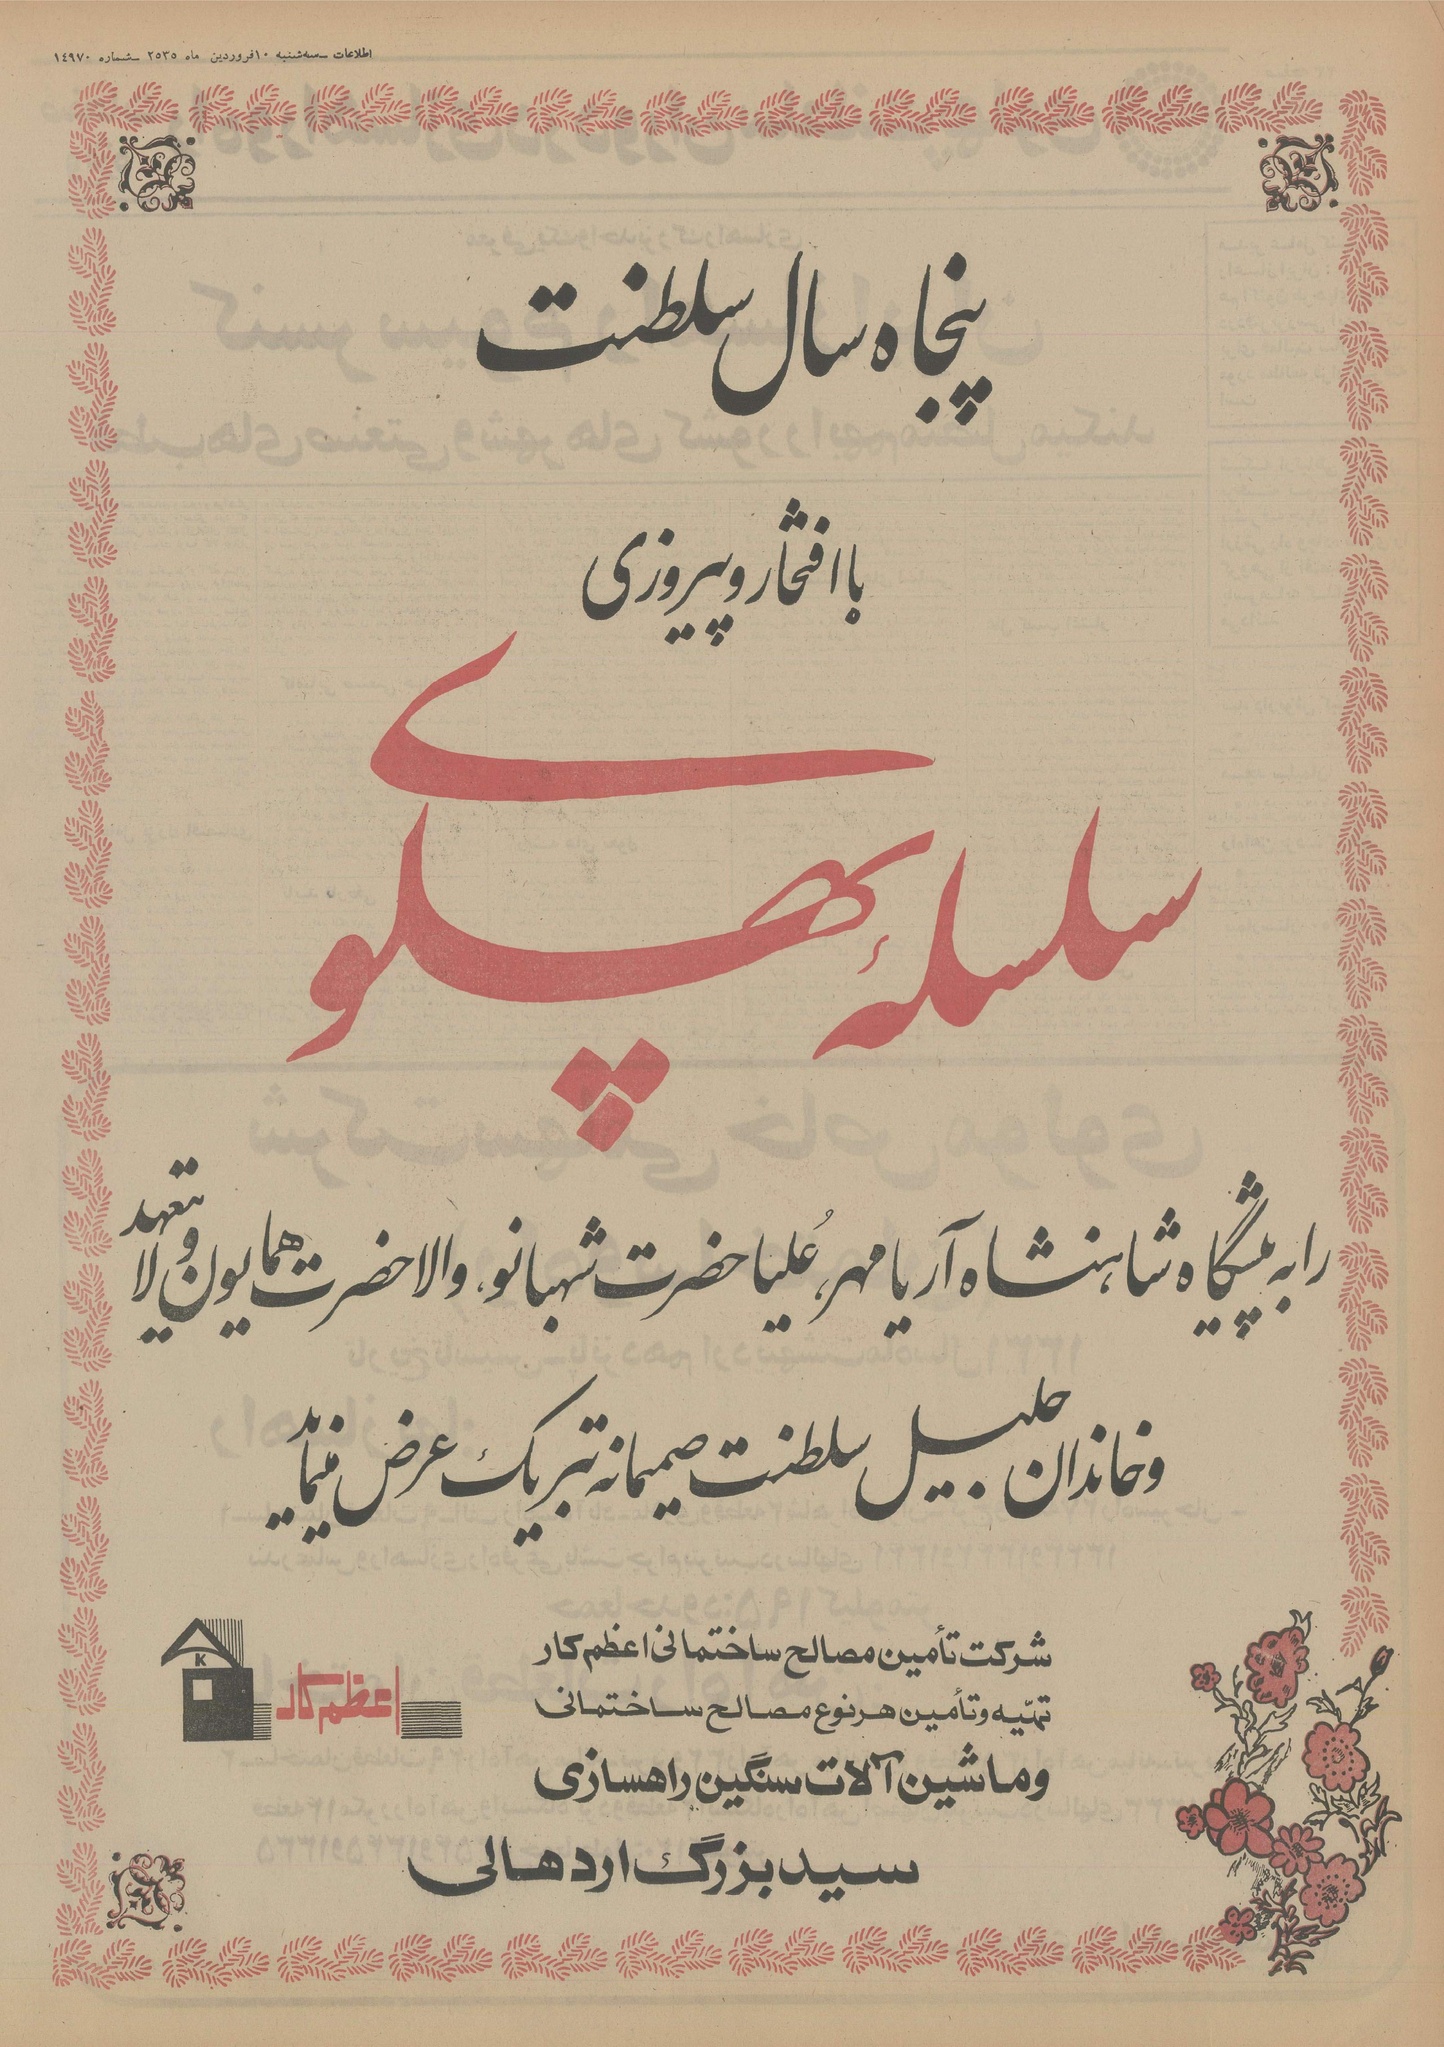 اطلاعات ـ سه‌شنبه ۱۰ فروردین ماه ۲۵۳۵ ـ شماره ۱٤۹۷۰
پنجاه سال سلطنت
با افتخار و پیروزی
سلسلهٔ پهلوی
را به پیشگاه شاهنشاه آریامهر، عُلیا حضرت شهبانو، والاحضرت همایون ولایتعهد
و خاندان جلیل سلطنت صمیمانه تبریک عرض مینماید
شرکت تأمین مصالح ساختمانی اعظم کار
تهیّه و تأمین هر نوع مصالح ساختمانی
و ماشین آلات سنگین راهسازی
سید بزرگ اردهالی
AK
اعظم کار